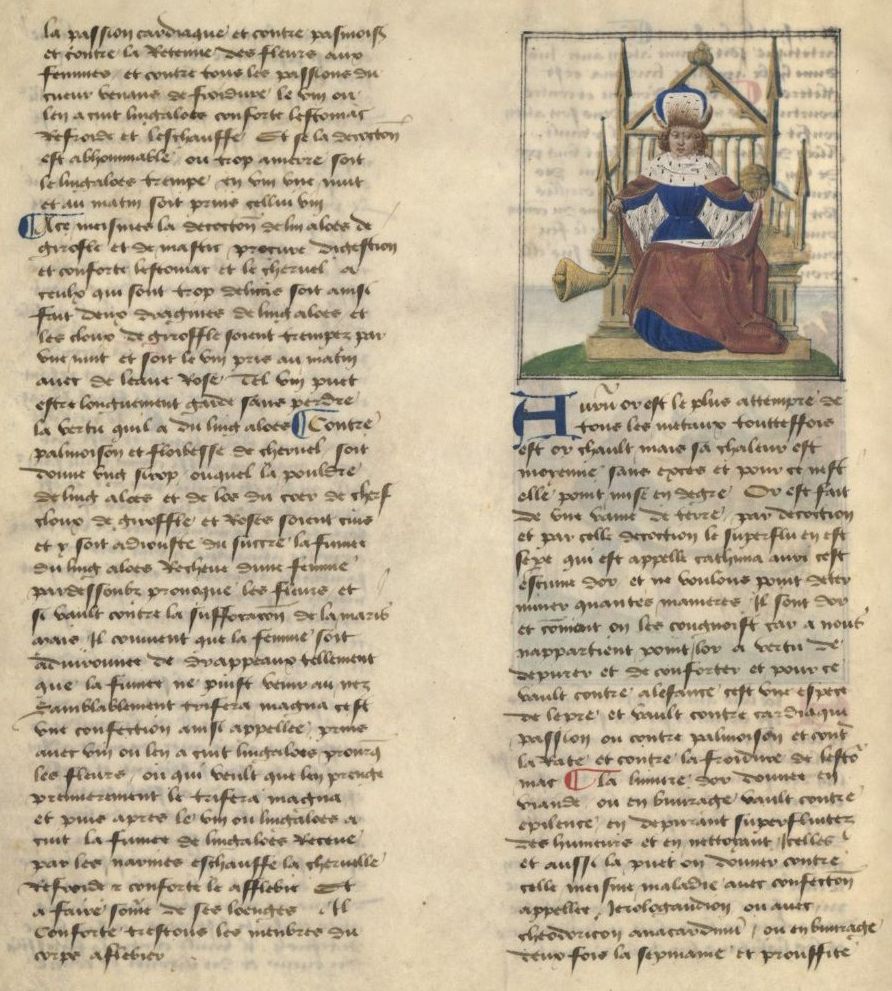 la passion cardiaque et contre pasmoison
et contre la Retenue des fleurs aux
femmes et contre tous les passions du
cueur venans de froidure le vin ou
len a cuit lingaloes conforte lestomac
Refroide et leschauffe Et se la decoction
est abhominable ou trop amerre soit
le lingaloes trempe en vin une nuit
et au matin soit prins cellui vin
A ce meismes la decoction de lin aloes de
girofle et de mastic procure digestion
et conforte lestomac et le chervel a
ceulx qui sont trop soit ainsi
fait deux dragmes de ling aloes et
les cloux de giroffle soient trempez par
une nuit et soit le vin pris au matin
avec de leaue Rose Tel vin puet
estre longuement garde sans perdre
la vertu quil a du ling aloes Contre
palmoison et floibesse de chervel soit
donne ung sirop ouquel la pouldre
de ling aloes et de los du coer de cherf
cloux de giroffle et Roses soient cuis
et y soit adiouste du succre la fumee
du ling aloes Recheue dune femme
par dessoubz prouoque les fleurs et
si vault contre la suffocacon de la maris
mais Il convient que la femme soit
aduironnee de drappeaux tellement
que la fumee ne puist venir au nez
Samblablement trifera magna cest
une confection ainsi appellee prinse
avec vin ou len a cuit lingaloes prouoq
les fleurs ou qui veult que len prenge
premierement le trifera magna
et puis apres le vin ou lingaloes a
cuit la fumee de lingaloes Receue
par les narines eschauffe la chervelle
Refroidie conforte le afflebie Et
a faire some de ses loenges Il
Conforte trestous les menbres du
corps aflebiez
Auru or est le plus attempre de
tous les metaux touttesfois
est or chault mais sa chaleur est
moyenne sans exces et pour ce nest
elle point mise en degre Or est fait
de une vaine de terre par decoction
et par celle decoction le superflu en est
sepe qui est appelle cathimia auri cest
escume dor et ne voulons point deter
miner quantes manieres Il sont dor
et coment on les congnoist car a nous
nappartient point lor a vertu de
depurer et de conforter et pour ce
vault contre cest une espece
de lepre et vault contre cardiaque
passion ou contre palmoison et cont
la Rate et contre la froidure de lesto
mac la limure dor donnee en
viande ou en buurage vault contre
epilence en depurant superfluitez
des humeurs et en nettoyant Icelles
et aussi la puet on donner contre
celle meisme maladie avec confection
appellee Ierologaudion ou avec
theodoricon anacardinu ou en buurage
deux fois la sepmaine et prouffite